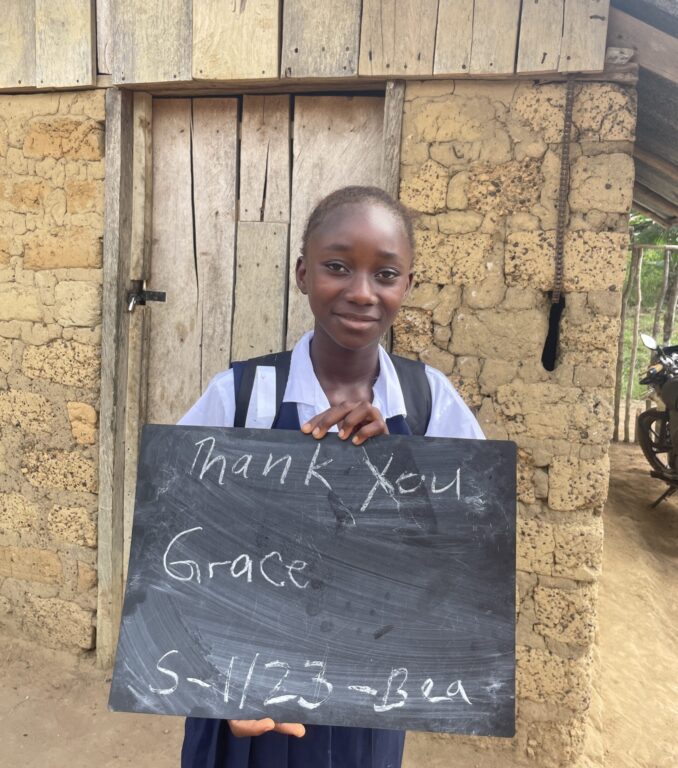 Thank You
Grace
S-1/23-Bea